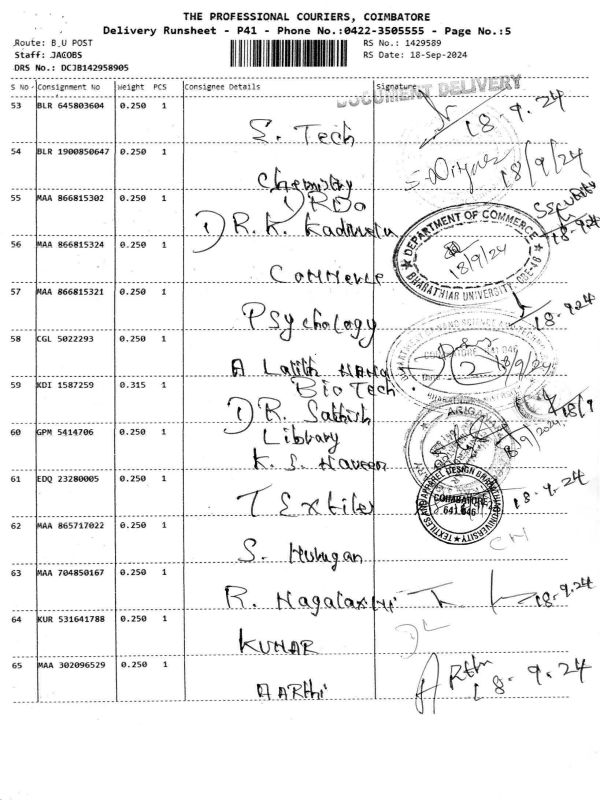 THE PROFESSIONAL COURIERS, COIMBATORE
Delivery Runsheet - P41 - Phone No.:0422-3505555 - Page No.:5
Route: B.U POST
RS No.: 1429589
Staff: JACOBS
RS Date: 18-Sep-2024
DRS No.: DCJB142958905
S No Consignment No Weight PCS Consignee Details Signature
DOCUMENT DELIVERY
53 BLR 645803604 0.250 1
S. Tech 18.9.24
54 BLR 1900850647 0.250 1
Chemistry 18/9/24
55 MAA 866815302 0.250 1
DRDO
DR.K. SECURITY
18.9.24
56 MAA 866815324 0.250 1
Commerce
DEPARTMENT OF COMMERCE
18/9/24
BHARATHIAR UNIVERSITY, CBE-46
57 MAA 866815321 0.250 1
Psychology 18.9.24
58 CGL 5022293 0.250 1
A Lalith 18/9/24
59 KDI 1587259 0.315 1
Bio Tech.
DR. Sathish 18/9
60 GPM 5414706 0.250 1
Library 18/9/2024
K. S. Naveen
61 EDQ 23280005 0.250 1
Textiles 18.9.24
TEXTILES AND APPAREL DESIGN BHARATHIAR UNIVERSITY
COIMBATORE
641 046
62 MAA 865717022 0.250 1
S. Murugan
63 MAA 704850167 0.250 1
R. Nagalaxmi 18.9.24
64 KUR 531641788 0.250 1
KUMAR
65 MAA 302096529 0.250 1
AARthi ARthi 18.9.24